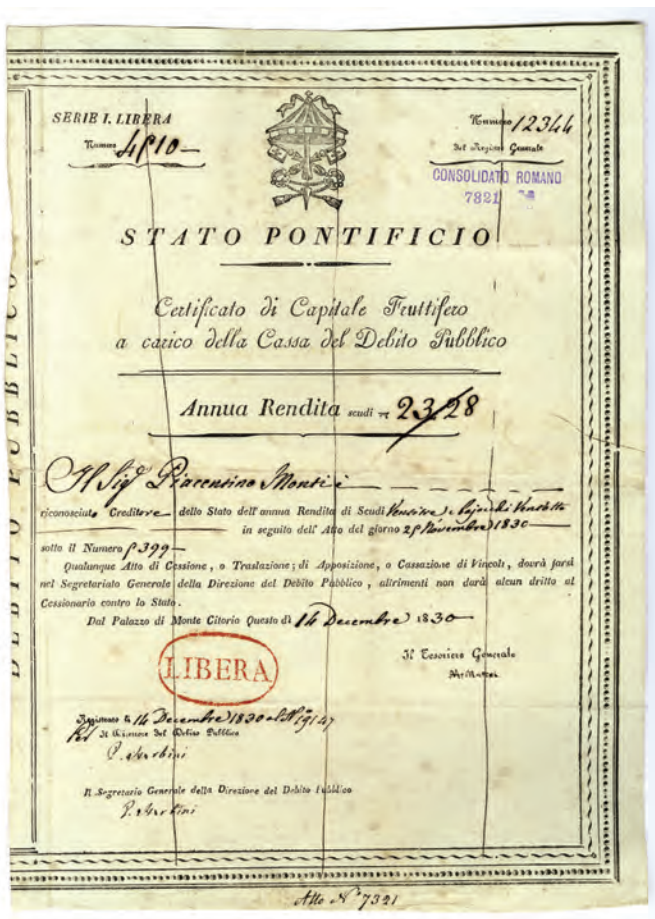 SERIE I. LIBERA
Numero
Numero 12344
del Registro Generale
CONSOLIDATO ROMANO
7821
STATO PONTIFICIO
Certificato di Capitale Fruttifero
a carico della Cassa del Debito Pubblico
Annua Rendita scudi 23/28
Il Sig.r Piacentino Monti è
riconosciuto Creditore dello Stato dell'annua Rendita di Scudi Ventitre e bajocchi Ventotto
in seguito dell' Atto del giorno Novembre 1830
sotto il Numero
Qualunque Atto di Cessione, o Traslazione; di Apposizione, o Cassazione di Vincoli, dovrà farsi
nel Segretariato Generale della Direzione del Debito Pubblico, altrimenti non darà alcun dritto al
Cessionario contro lo Stato.
Dal Palazzo di Monte Citorio Questo dì 14 Decembre 1830
Il Tesoriere Generale
LIBERA
Registrato li 14 Decembre 1830 al N.º 19147
Per Il Direttore del Debito Pubblico
Il Segretario Generale della Direzione del Debito Pubblico
Atto N.º 7321
DEBITO PUBBLICO